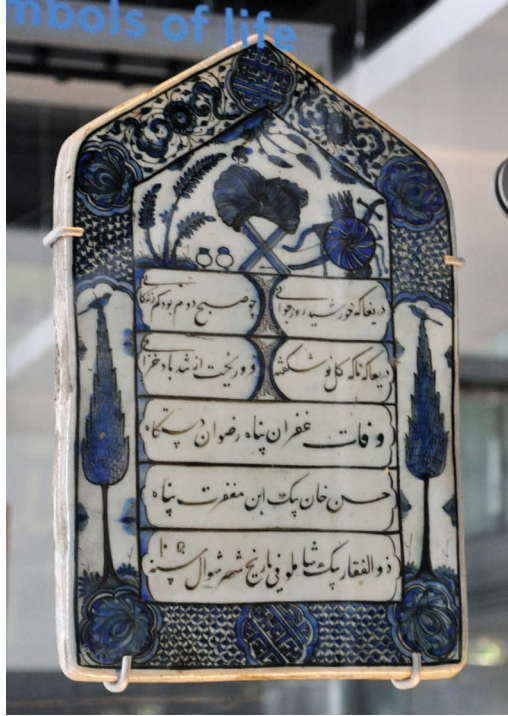 mbols of life
دریغا که خورشید روز جوانی چو صبح دوم بود کم زندگانی
دریغا که ناکه کل نو شکفته فرو ریخت از تند باد خزانی
وفات غفران پناه رضوان دستکاه
حسن خان بیک ابن مغفرت پناه
ذوالفقار بیک شاملو فی تاریخ شهر شوال سنه